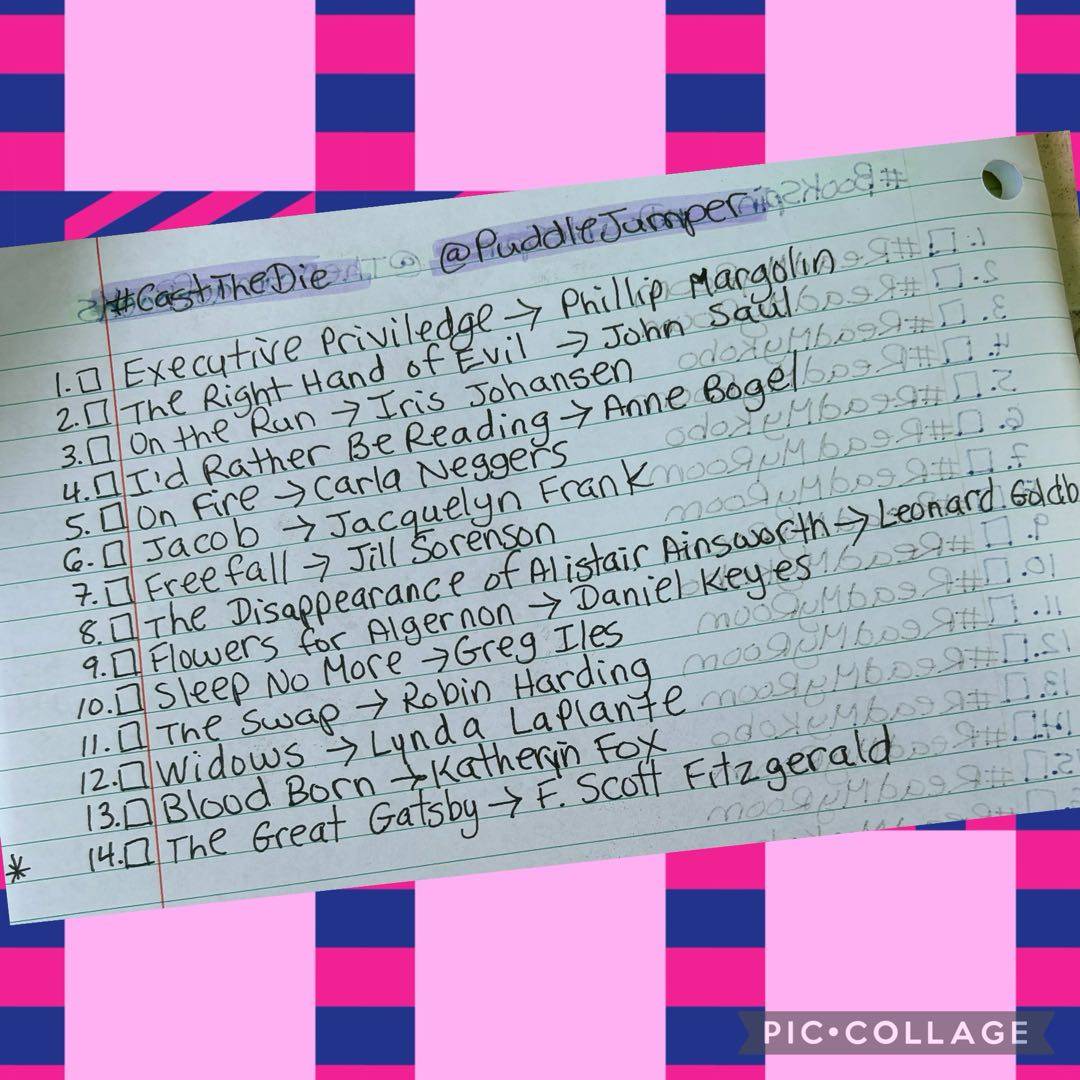 #CastTheDie @PuddleJumper
1. Executive Priviledge → Phillip Margolin
2. The Right Hand of Evil → John Saul
3. On the Run → Iris Johansen
4. I'd Rather Be Reading → Anne Bogel
5. On Fire → Carla Neggers
6. Jacob → Jacquelyn Frank
7. Freefall → Jill Sorenson
8. The Disappearance of Alistair Ainsworth → Leonard Goldb
9. Flowers for Algernon → Daniel Keyes
10. Sleep No More → Greg Iles
11. The Swap → Robin Harding
12. Widows → Lynda LaPlante
13. Blood Born → Katheryn Fox
* 14. The Great Gatsby → F. Scott Fitzgerald
PIC•COLLAGE